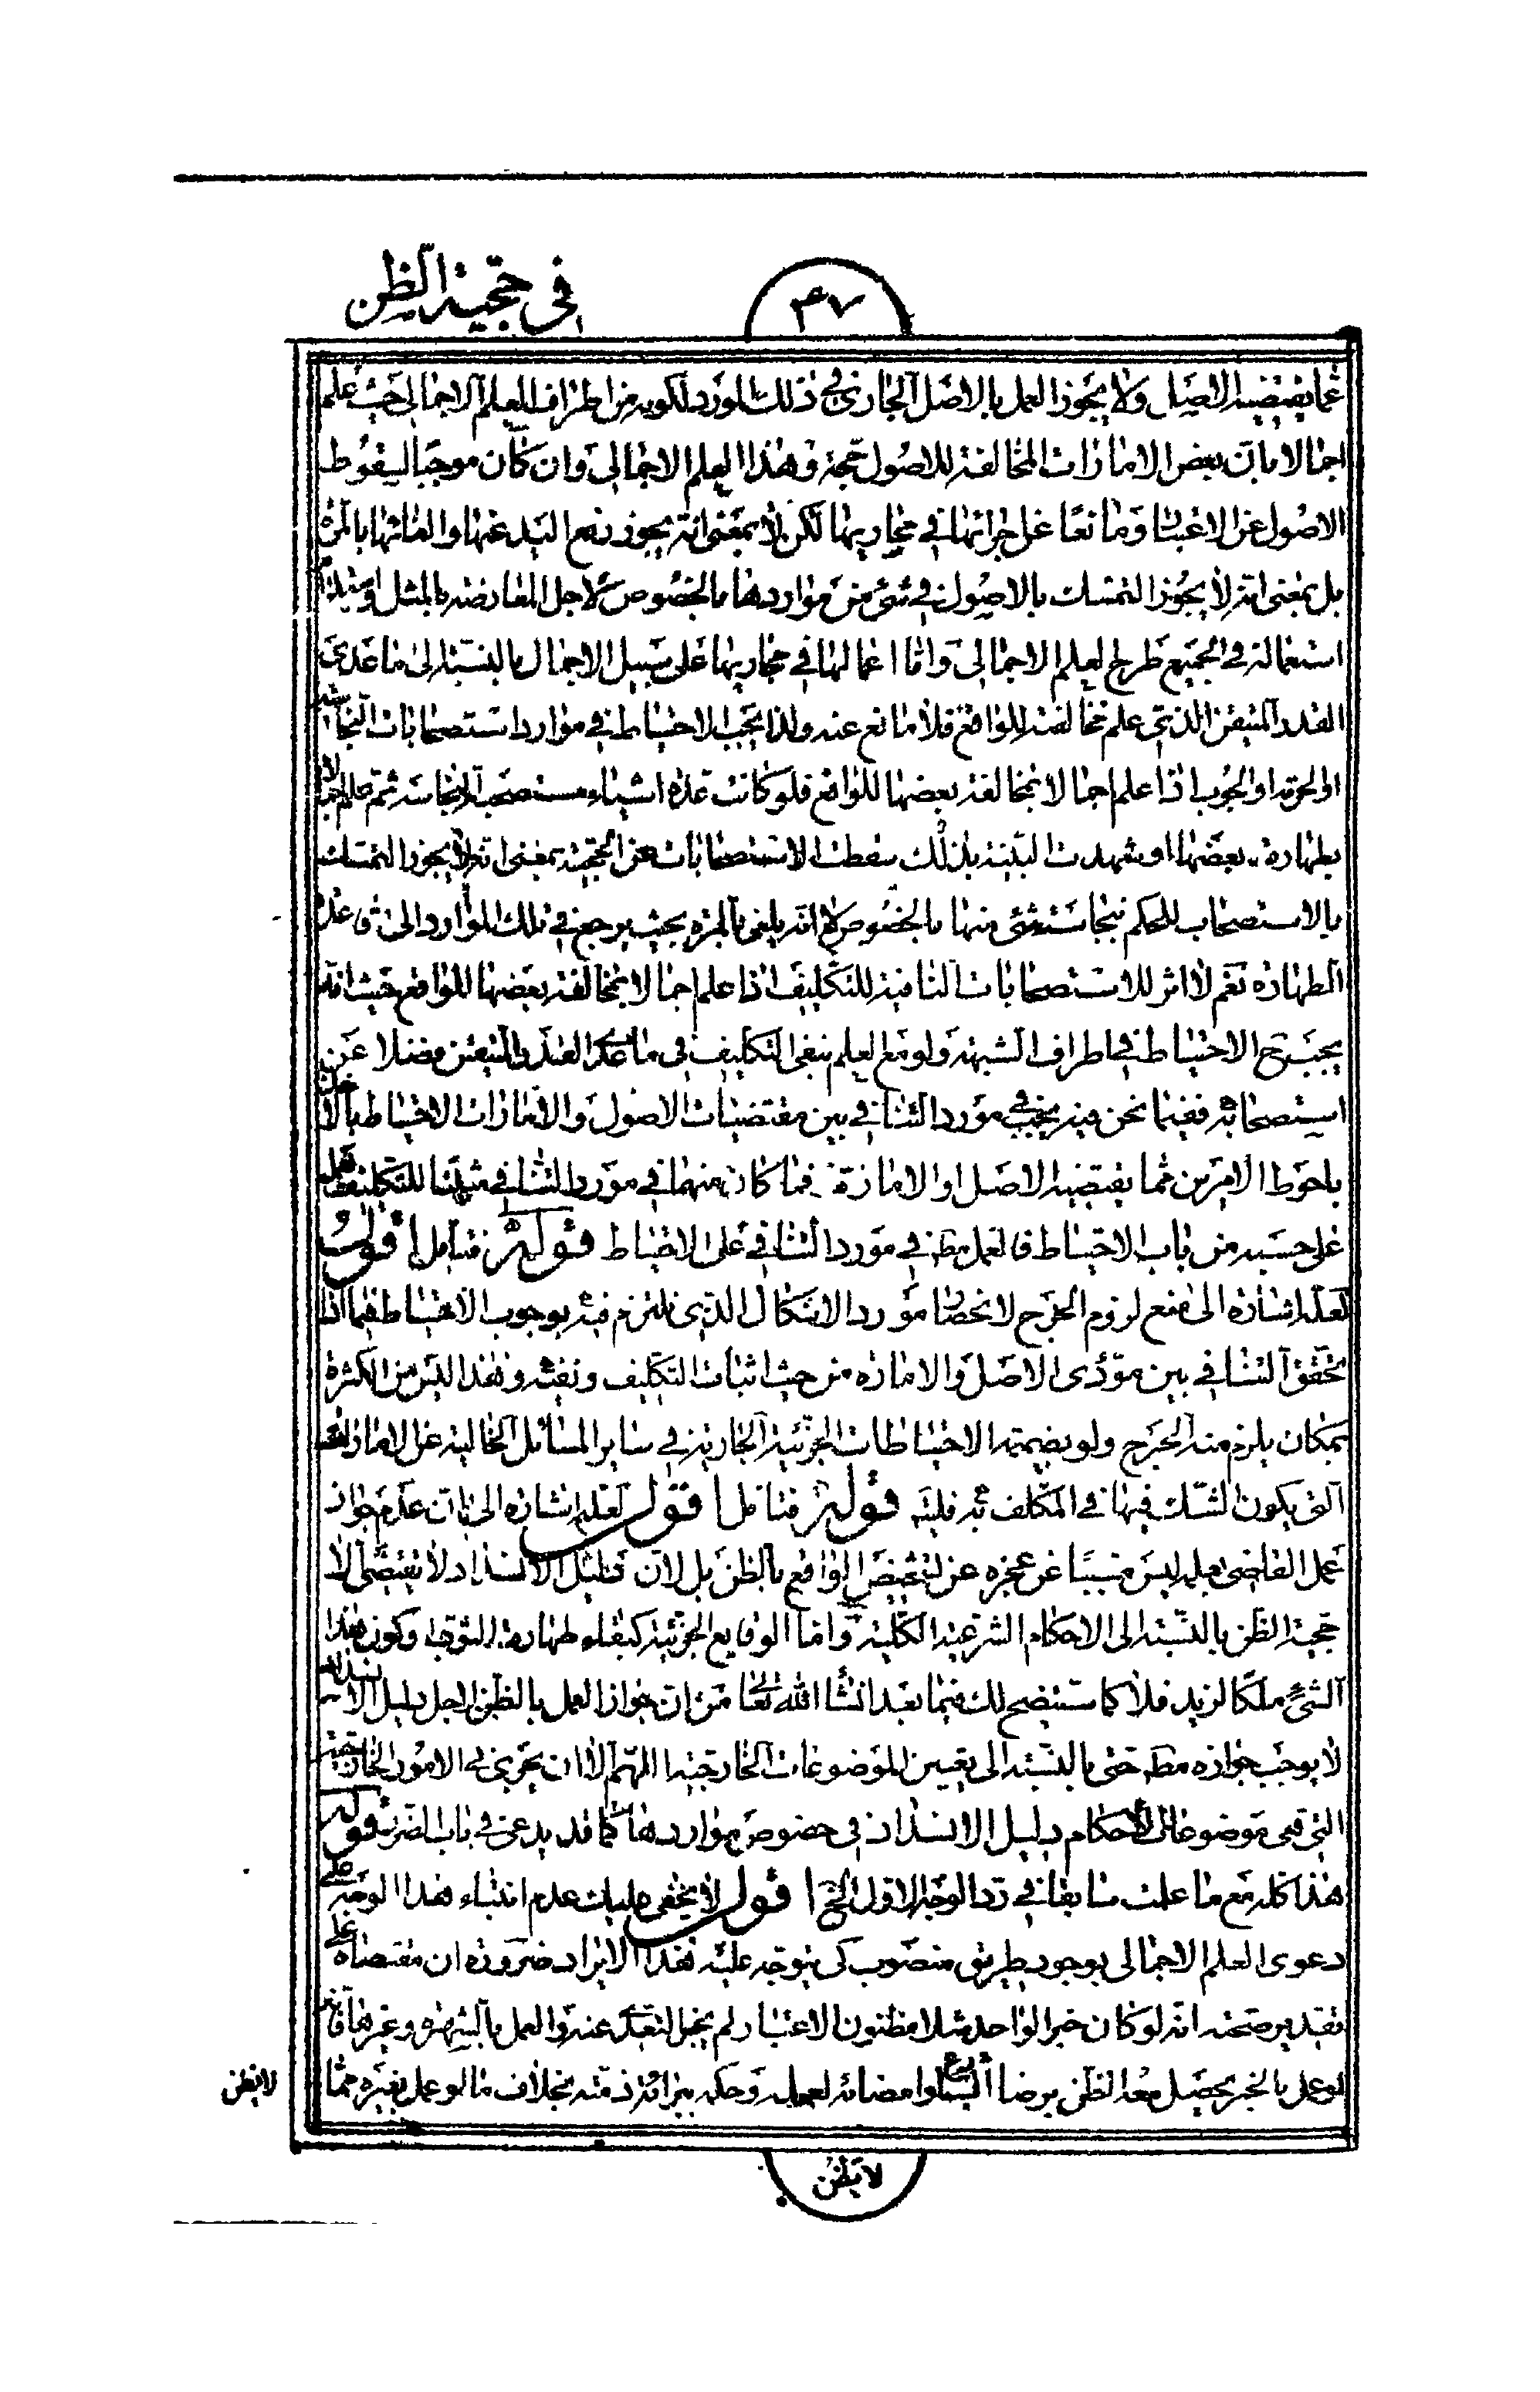 في حجية الظن
٤٧
عما يقتضيه الاصل ولا يجوز العمل بالاصل الجاري في ذلك المورد لكونه من اطراف العلم الاجمالي حيث علم
اجمالا بان بعض الامارات المخالفة للاصول حجة وهذا العلم الاجمالي وان كان موجبا لسقوط
الاصول عن الاعتبار ومانعا عن اجرائها في مجاريها لكن لا بمعنى انه يجوز رفع اليد عنها والغائها بالمرة
بل بمعنى انه لا يجوز التمسك بالاصول في شئ من مواردها بالخصوص لاجل المعارضة بالمثل
استعماله في الجميع طرح لعلم الاجمالي واما اعمالها في مجاريها على سبيل الاجمال بالنسبة الى ما عدى
القدر المتيقن الذي علم مخالفته للواقع فلا مانع عنه ولذا يجب الاحتياط في موارد استصحابات النجاسة
او الحرمة او الوجوب اذا علم اجمالا بمخالفة بعضها للواقع فلو كانت عدة اشياء مستصحبة النجاسة ثم علم اجمالا
بطهارة بعضها او شهدت البينة بذلك سقطت الاستصحابات عن الحجية بمعنى انه لا يجوز التمسك
بالاستصحاب للحكم بنجاسة شئ منها بالخصوص لا انه يلغى بالمرة بحيث يرجع في تلك الموارد الى قاعدة
الطهارة نعم لا اثر للاستصحابات النافية للتكليف اذا علم اجمالا بمخالفة بعضها للواقع حيث انه
يجب ح الاحتياط في اطراف الشبهة ولو مع العلم بنفي التكليف في ما عدى القدر المتيقن فضلا عن
استصحابه ففيما نحن فيه يجب في مورد التنافي بين مقتضيات الاصول والامارات الاحتياط بالاخذ
باحوط الامرين مما يقتضيه الاصل او الامارة فما كان منهما في مورد التنافي مثبتا للتكليف يعمل
على حسبه من باب الاحتياط فالعمل مطلقا في مورد التنافي على الاحتياط قوله فتامل اقول
لعله اشارة الى منع لزوم الحرج لانحصار مورد الاشكال الذي نلتزم فيه بوجوب الاحتياط فيما اذا
تحقق التنافي بين مؤدى الاصل والامارة من حيث اثبات التكليف ونفيه وهذا ليس من الكثرة
بمكان يلزم منه الحرج ولو بضميمة الاحتياطات الجزئية الجارية في ساير المسائل الخالية عن الامارات
التي يكون الشك فيها في المكلف به فليتأمل قوله فتامل اقول لعله اشارة الى ان عدم جواز
عمل القاضي بعلمه ليس مسببا عن عجزه عن تشخيص الواقع بالظن بل لان دليل الانسداد لا يقتضي الا
حجية الظن بالنسبة الى الاحكام الشرعية الكلية واما الوقايع الجزئية كبقاء طهارة الثوب وكون هذا
الشئ ملكا لزيد فلا كما ستتضح لك فيما بعد انشا الله تعالى من ان جواز العمل بالظن لاجل دليل الانسداد
لا يوجب جوازه مطلقا حتى بالنسبة الى تعيين الموضوعات الخارجية اللهم الا ان يجرى في الامور الخارجية
التي هي موضوعات الاحكام دليل الانسداد في خصوص مواردها كما قد يدعى في باب الضرر قوله
هذا كله مع ما علمت سابقا في رد الوجه الاول الخ اقول لا يخفى عليك عدم ابتناء هذا الوجه على
دعوى العلم الاجمالي بوجود طريق منصوب كى يتوجه عليه هذا الايراد ضرورة ان مقتضاه على
تقدير صحته انه لو كان خبر الواحد مثلا مظنون الاعتبار لم يجز التعبد عنه والعمل بالشهرة وغيرها
لو عمل بالخبر يحصل معه الظن برضا الشارع وامضائه لعمله وحكمه ببرائة ذمته بخلاف ما لو عمل بغيره مما
لا يظن
لا يظن